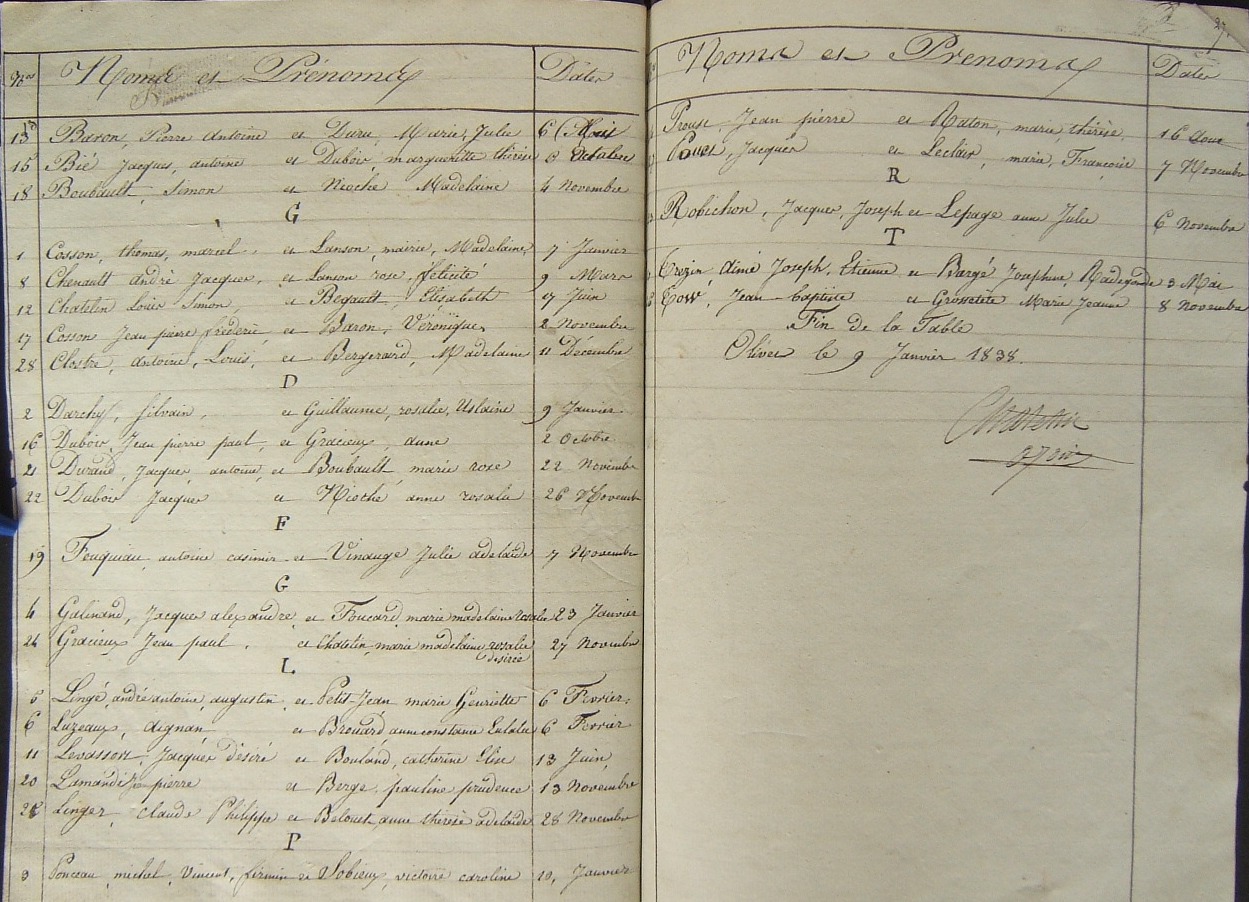 Nos Noms et Prénoms Dates
13 Baron, Pierre Antoine et Duru, Marie, Julie 6
15 Bié Jacques, antoine et Dubois margueritte thérèse 8 Octobre
18 Boubault, Simon et Nioche Madelaine 4 Novembre
G
1 Cosson, thomas, marcel, et Lanson, mairie, Madelaine, 7 Janvier
8 Chenault andrè Jacques, et Lanson rose, felicité 9 Mars
12 Chatelin Louis Simon, et Begault, Elisabeth 17 Juin
17 Cosson Jean pierre frederic, et Baron, Véronique, 2 Novembre
28 Clostre, Antoine, Louis, et Bergerard, Madelaine 11 Décembre
D
2 Darchy, Silvain, et Guillaume, rosalie, 9 Janvier
16 Dubois, Jean pierre paul, et Gracieux, anne 2 Octobre
21 Durand, Jacques, antoine, et Boubault, marie rose 22 Novembre
22 Dubois Jacques et Nioche anne rosalie 26 Novembre
F
19 Fouquiau, antoine casimir et Vinauge Julie adelaïde 7 Novembre
G
4 Galinand, Jacques alexandre, et Foucard, marie madelaine rosalie 23 Janvier
24 Gracieux Jean paul, et Chatelin, marie madelaine, rosalie 27 Novembre
desirée
L
5 Lingé, andré antoine, augustin, et Petit-Jean marie henriette 6 Fevrier,
6 Luzeaux, aignan, et Brouard anne constance Eulalie 6 Fevrier
11 Levassort, Jacques désiré et Bouland, catherine Elise 13 Juin,
20 Lamandé, pierre et Berge, pauline prudence 13 Novembre
Linger, claude Philippe et Belouet, anne thérèse adelaïde 28 Novembre
P
3 Ponceau, michel, Vincent, firmin et Sobieux, victoire caroline 10, Janvier
27
Noms et Prenoms Dates
Proust, Jean pierre et Raton, marie, thérèse, 16
Jacques et Leclair, marie, Françoise 7 Novembre
R
Robichon, Jacques, Joseph et Lepage anne Julie 6 Novembre
T
Trezin aimé Joseph, Etienne et Bargé Josephine, Radegonde 3 Mai
Jean-baptiste et Grossetête Marie Jeanne 8 Novembre
Fin de la Table
Olivet le 9 Janvier 1838.